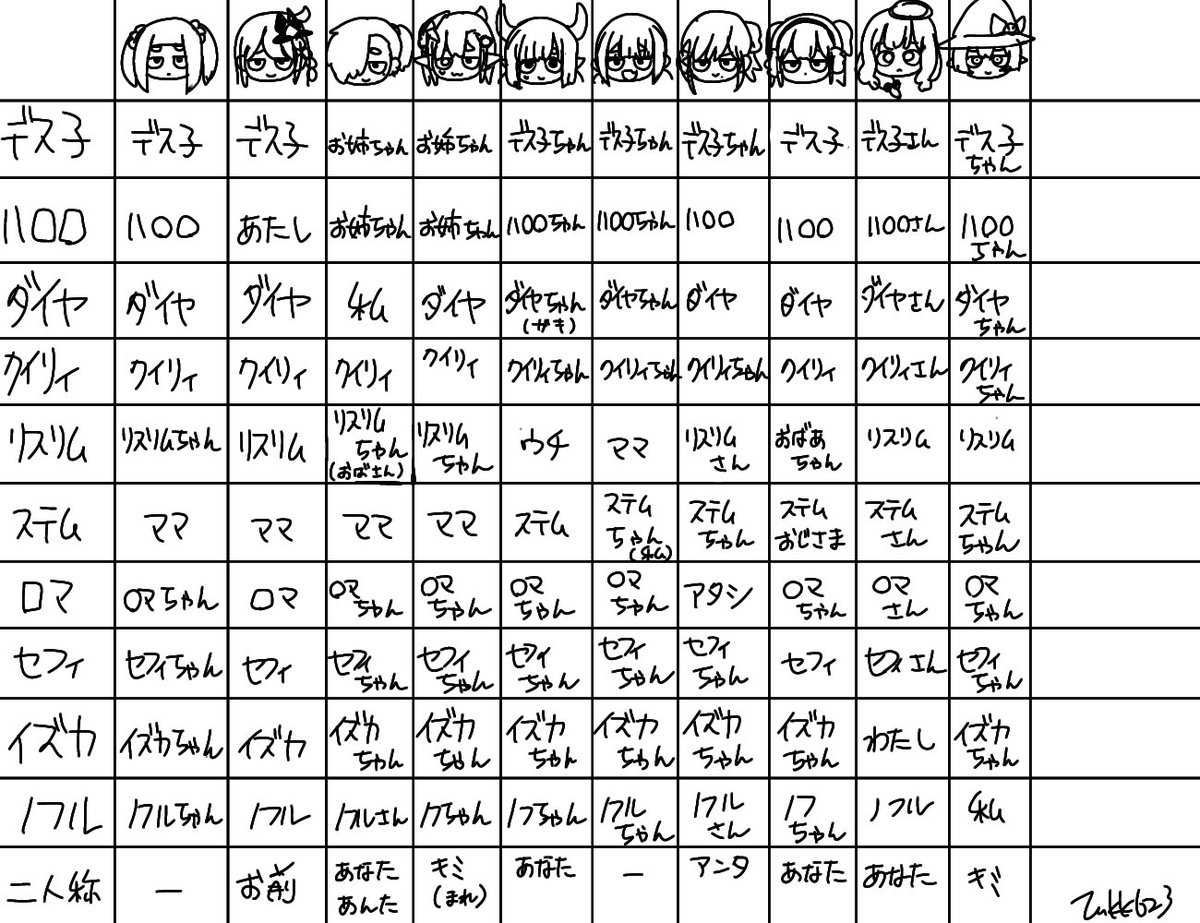 デス子 デス子 デス子 お姉ちゃん お姉ちゃん デス子ちゃん デス子ちゃん デス子ちゃん デス子 デス子さん デス子ちゃん
1100 1100 あたし お姉ちゃん お姉ちゃん 1100ちゃん 1100ちゃん 1100 1100 1100さん 1100ちゃん
ダイヤ ダイヤ ダイヤ 私 ダイヤ ダイヤちゃん(ガキ) ダイヤちゃん ダイヤ ダイヤ ダイヤさん ダイヤちゃん
クイリィ クイリィ クイリィ クイリィ クイリィ クイリィちゃん クイリィちゃん クイリィちゃん クイリィ クイリィさん クイリィちゃん
リスリム リスリムちゃん リスリム リスリムちゃん(おばさん) リスリムちゃん ウチ ママ リスリムさん おばあちゃん リスリム リスリム
ステム ママ ママ ママ ママ ステム ステムちゃん(私) ステムちゃん ステムおじさま ステムさん ステムちゃん
ロマ ロマちゃん ロマ ロマちゃん ロマちゃん ロマちゃん ロマちゃん アタシ ロマちゃん ロマさん ロマちゃん
セフィ セフィちゃん セフィ セフィちゃん セフィちゃん セフィちゃん セフィちゃん セフィちゃん セフィ セフィさん セフィちゃん
イズカ イズカちゃん イズカ イズカちゃん イズカちゃん イズカちゃん イズカちゃん イズカちゃん イズカちゃん わたし イズカちゃん
ノフル ノフルちゃん ノフル ノフルさん ノフちゃん ノフちゃん ノフルちゃん ノフルさん ノフちゃん ノフル 私
二人称 ー お前 あなた あんた キミ(まれ) あなた ー アンタ あなた あなた キミ